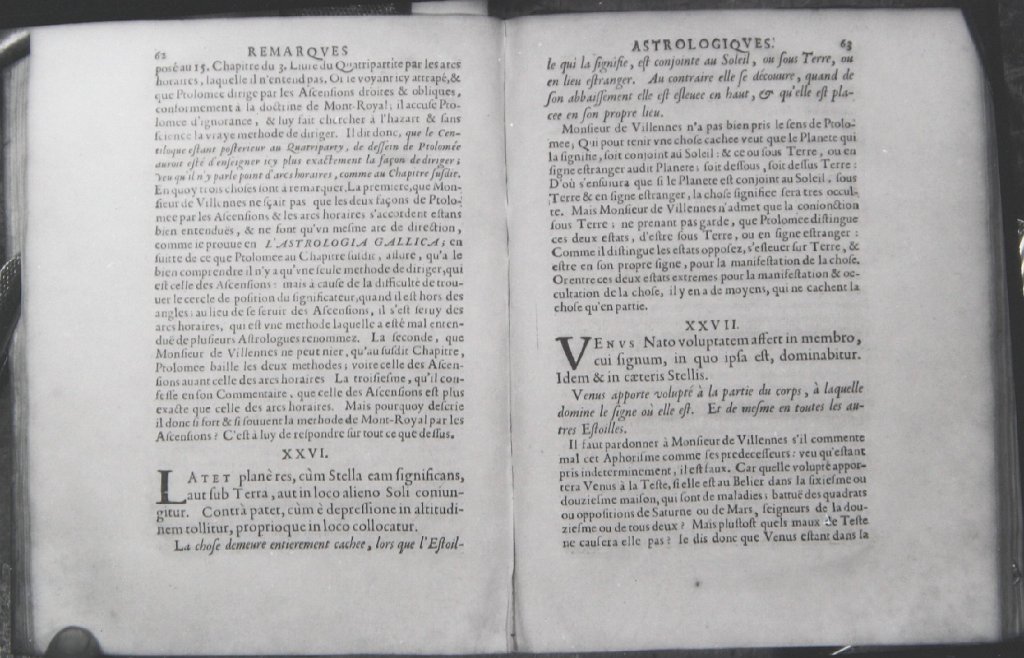 62
REMARQVES
posé au 15. Chapitre du 3. Liure du Quatripartite par les arcs
horaires, laquelle il n'entend pas. Or le voyant icy attrapé, &
que Ptolomee dirige par les Ascensions droites & obliques,
conformement à la doctrine de Mont-Royal; il accuse Pto-
lomee d'ignorance, & luy fait chercher à l'hazart & sans
science la vraye methode de diriger. Il dit donc, que le Cen-
tiloque estant posterieur au Quatriparty, de dessein de Ptolomée
auroit esté d'enseigner icy plus exactement la façon de diriger;
veu qu'il n'y parle point d'arcs horaires, comme au Chapitre susdit.
En quoy trois choses sont à remarquer. La premiere, que Mon-
sieur de Villennes ne sçait pas que les deux façons de Ptolo-
mee par les Ascensions & les arcs horaires s'accordent estans
bien entenduës, & ne sont qu'vn mesme arc de direction,
comme ie prouue en L'ASTROLOGIA GALLICA; en
suitte de ce que Ptolomee au Chapitre susdit, assure, qu'a le
bien comprendre il n'y a qu'vne seule methode de diriger, qui
est celle des Ascensions: mais à cause de la difficulté de trou-
uer le cercle de position du significateur, quand il est hors des
angles: au lieu de se seruir des Ascensions, il s'est seruy des
arcs horaires, qui est vne methode laquelle a esté mal enten-
duë de plusieurs Astrologues renommez. La seconde, que
Monsieur de Villennes ne peut nier, qu'au susdit Chapitre,
Ptolomee baille les deux methodes; voire celle des Ascen-
sions auant celle des arcs horaires La troisiesme, qu'il con-
fesse en son Commentaire, que celle des Ascensions est plus
exacte que celle des arcs horaires. Mais pourquoy descrie
il donc si fort & si souuent la methode de Mont-Royal par les
Ascensions? C'est à luy de respondre sur tout ce que dessus.
XXVI.
LATET planè res, cùm Stella eam significans,
aut sub Terra, aut in loco alieno Soli coniun-
gitur. Contrà patet, cùm è depressione in altitudi-
nem tollitur, proprioque in loco collocatur.
La chose demeure entierement cachee, lors que l'Estoil-
ASTROLOGIQVES.
63
le qui la signifie, est conjointe au Soleil, ou sous Terre, ou
en lieu estranger. Au contraire elle se découure, quand de
son abbaissement elle est esleuee en haut, & qu'elle est pla-
cee en son propre lieu.
Monsieur de Villennes n'a pas bien pris le sens de Ptolo-
mee; Qui pour tenir vne chose cachee veut que le Planete qui
la signifie, soit conjoint au Soleil: & ce ou sous Terre, ou en
signe estranger audit Planete; soit dessous, soit dessus Terre:
D'où s'ensuiura que si le Planete est conjoint au Soleil, sous
Terre & en signe estranger, la chose signifiee sera tres occul-
te. Mais Monsieur de Villennes n'admet que la conionction
sous Terre; ne prenant pas garde, que Ptolomee distingue
ces deux estats, d'estre sous Terre, ou en signe estranger:
Comme il distingue les estats opposez, s'esleuer sur Terre, &
estre en son propre signe, pour la manifestation de la chose.
Or entre ces deux estats extremes pour la manifestation & oc-
cultation de la chose, il y en a de moyens, qui ne cachent la
chose qu'en partie.
XXVII.
VENVS Nato voluptatem affert in membro,
cui signum, in quo ipsa est, dominabitur.
Idem & in cæteris Stellis.
Venus apporte volupté à la partie du corps, à laquelle
domine le signe où elle est. Et de mesme en toutes les au-
tres Estoilles.
Il faut pardonner à Monsieur de Villennes s'il commente
mal cet Aphorisme comme ses predecesseurs: veu qu'estant
pris indeterminement, il est faux. Car quelle volupté appor-
tera Venus à la Teste, si elle est au Belier dans la sixiesme ou
douziesme maison, qui sont de maladies; battuë des quadrats
ou oppositions de Saturne ou de Mars, seigneurs de la dou-
ziesme ou de tous deux? Mais plustost quels maux de Teste
ne causera elle pas? Ie dis donc que Venus estant dans la